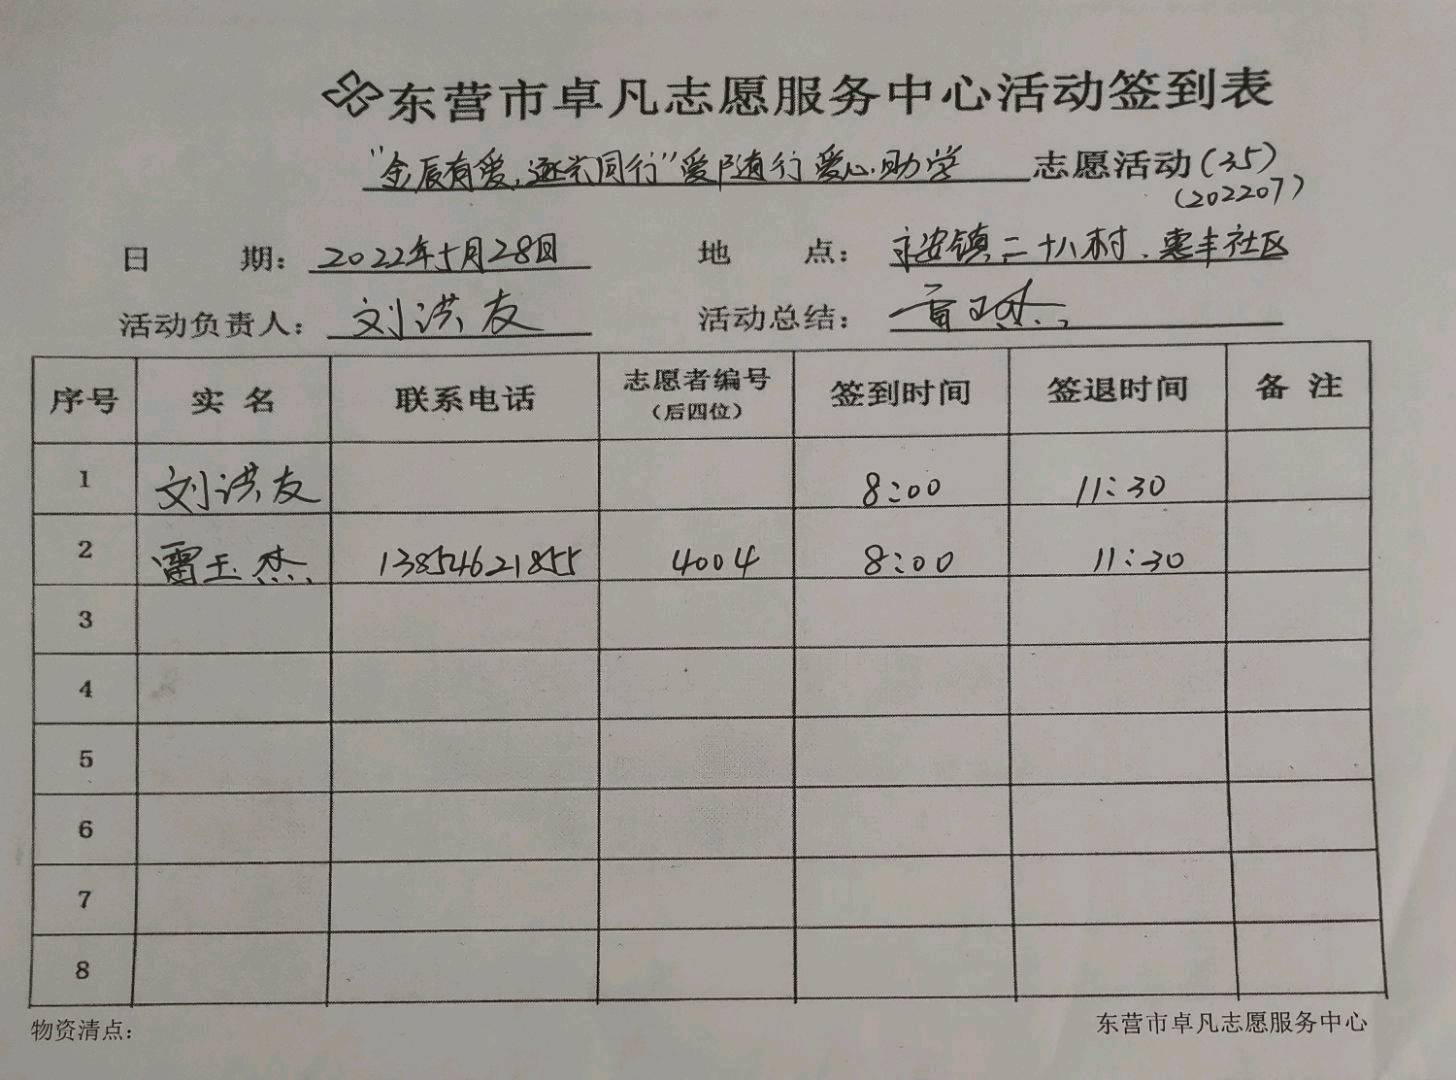 东营市卓凡志愿服务中心活动签到表
"金辰有爱,逐光同行"爱随行 爱心助学 志愿活动(35)
(202207)
日 期: 2022年十月28日 地 点: 永安镇二十八村、惠丰社区
活动负责人: 刘洪友 活动总结: 雷玉杰
序号 实名 联系电话 志愿者编号(后四位) 签到时间 签退时间 备注
1 刘洪友 8:00 11:30
2 雷玉杰 13854621855 4004 8:00 11:30
3
4
5
6
7
8
物资清点: 东营市卓凡志愿服务中心